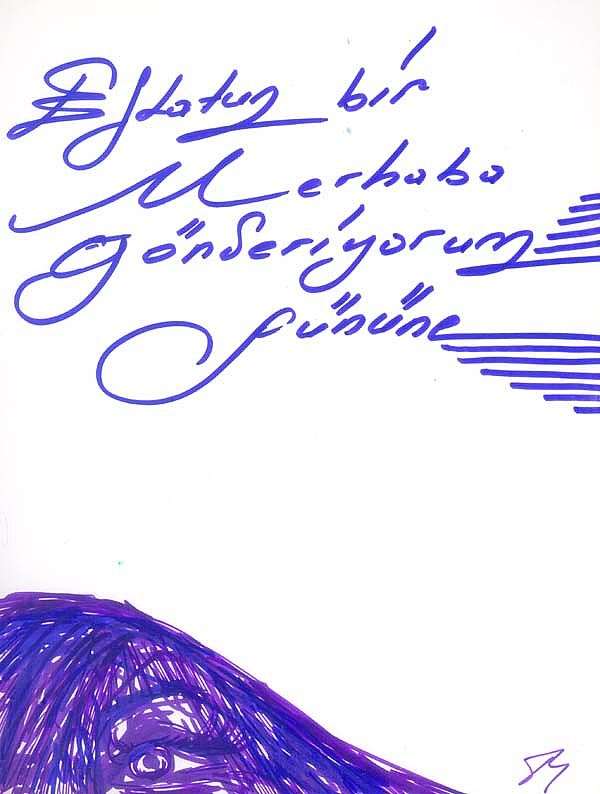 Eflatun bir
Merhaba
Gönderiyorum
Gününe